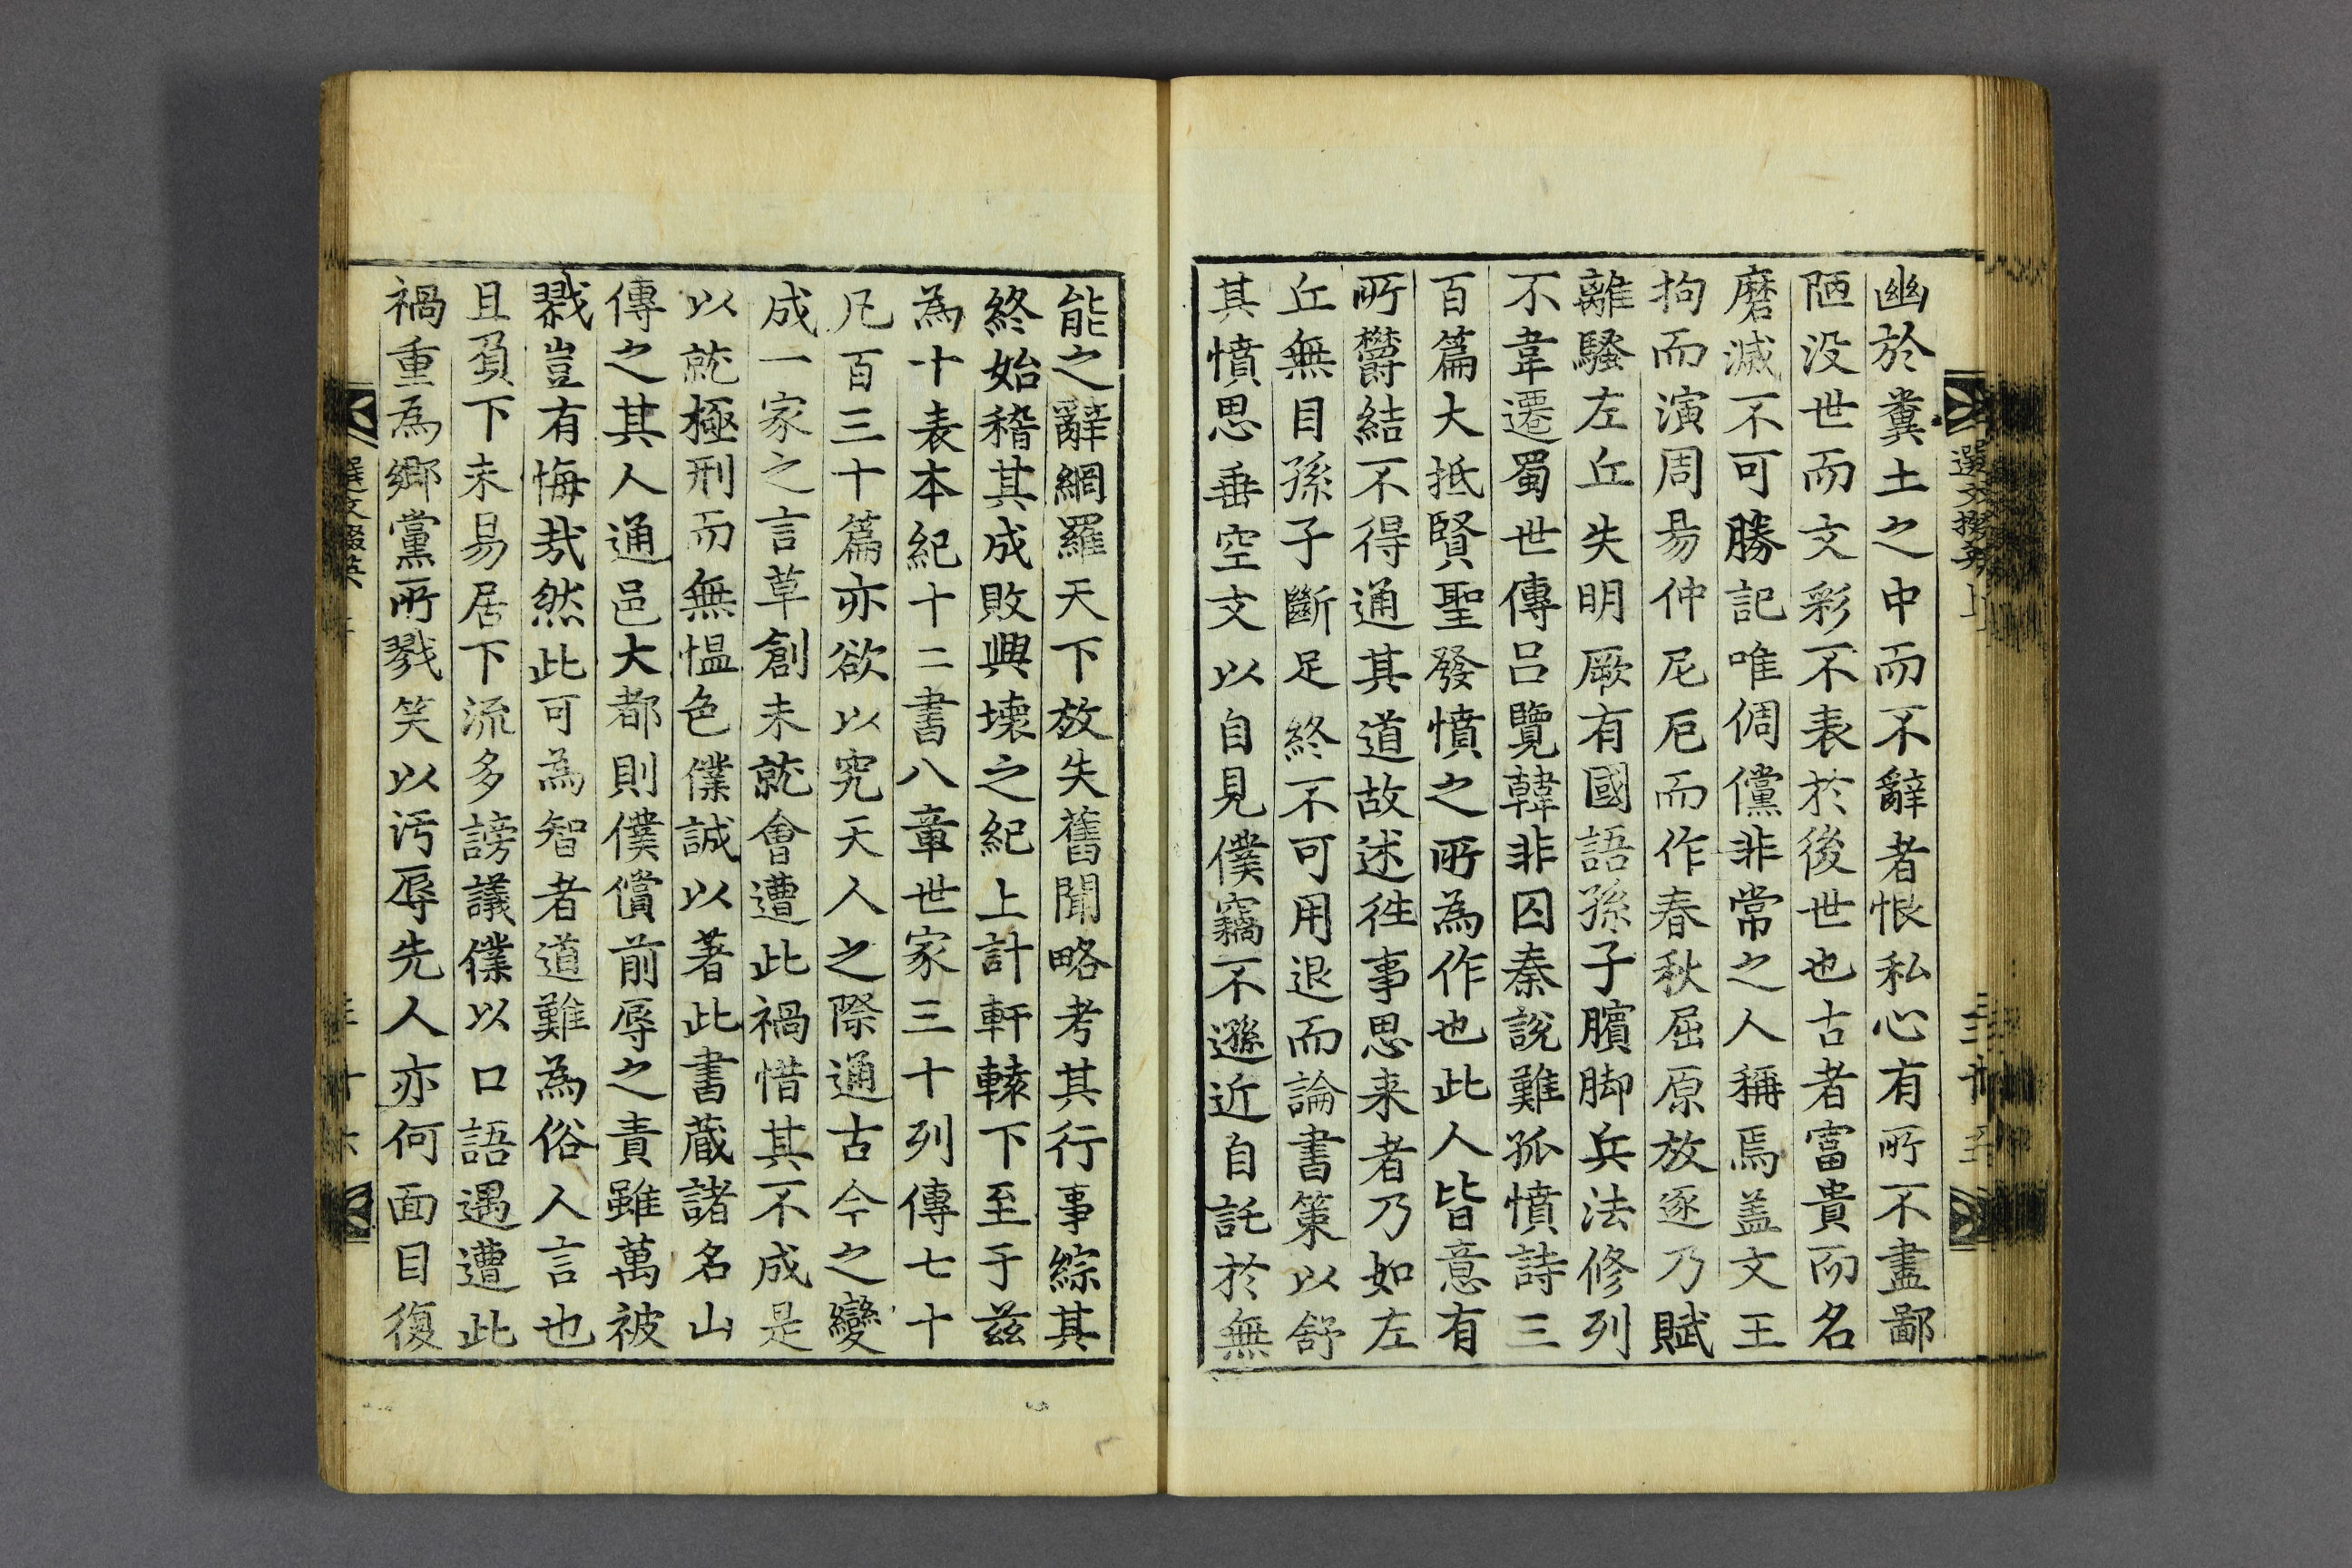 幽於糞土之中而不辭者恨私心有所不盡鄙
陋没世而文彩不表於後世也古者富貴而名
磨滅不可勝記唯倜儻非常之人稱焉盖文王
拘而演周易仲尼戹而作春秋屈原放逐乃賦
離騷左丘失明厥有國語孫子臏脚兵法修列
不韋遷蜀世傳呂覽韓非囚秦說難孤憤詩三
百篇大抵賢聖發憤之所為作也此人皆意有
所欝結不得通其道故述徃事思来者乃如左
丘無目孫子斷足終不可用退而論書策以舒
其憤思垂空文以自見僕竊不遜近自託於無
能之辭網羅天下放失舊聞略考其行事綜其
終始稽其成敗興壊之紀上計軒轅下至于玆
為十表本紀十二書八章世家三十列傳七十
凡百三十篇亦欲以究天人之際通古今之變
成一家之言草創未就會遭此禍惜其不成是
以就極刑而無愠色僕誠以著此書蔵諸名山
傳之其人通邑大都則僕償前辱之責雖萬被
戮豈有悔㦲然此可為智者道難為俗人言也
且負下未易居下流多謗議僕以口語遇遭此
禍重為鄉黨所戮笑以汚辱先人亦何面目復